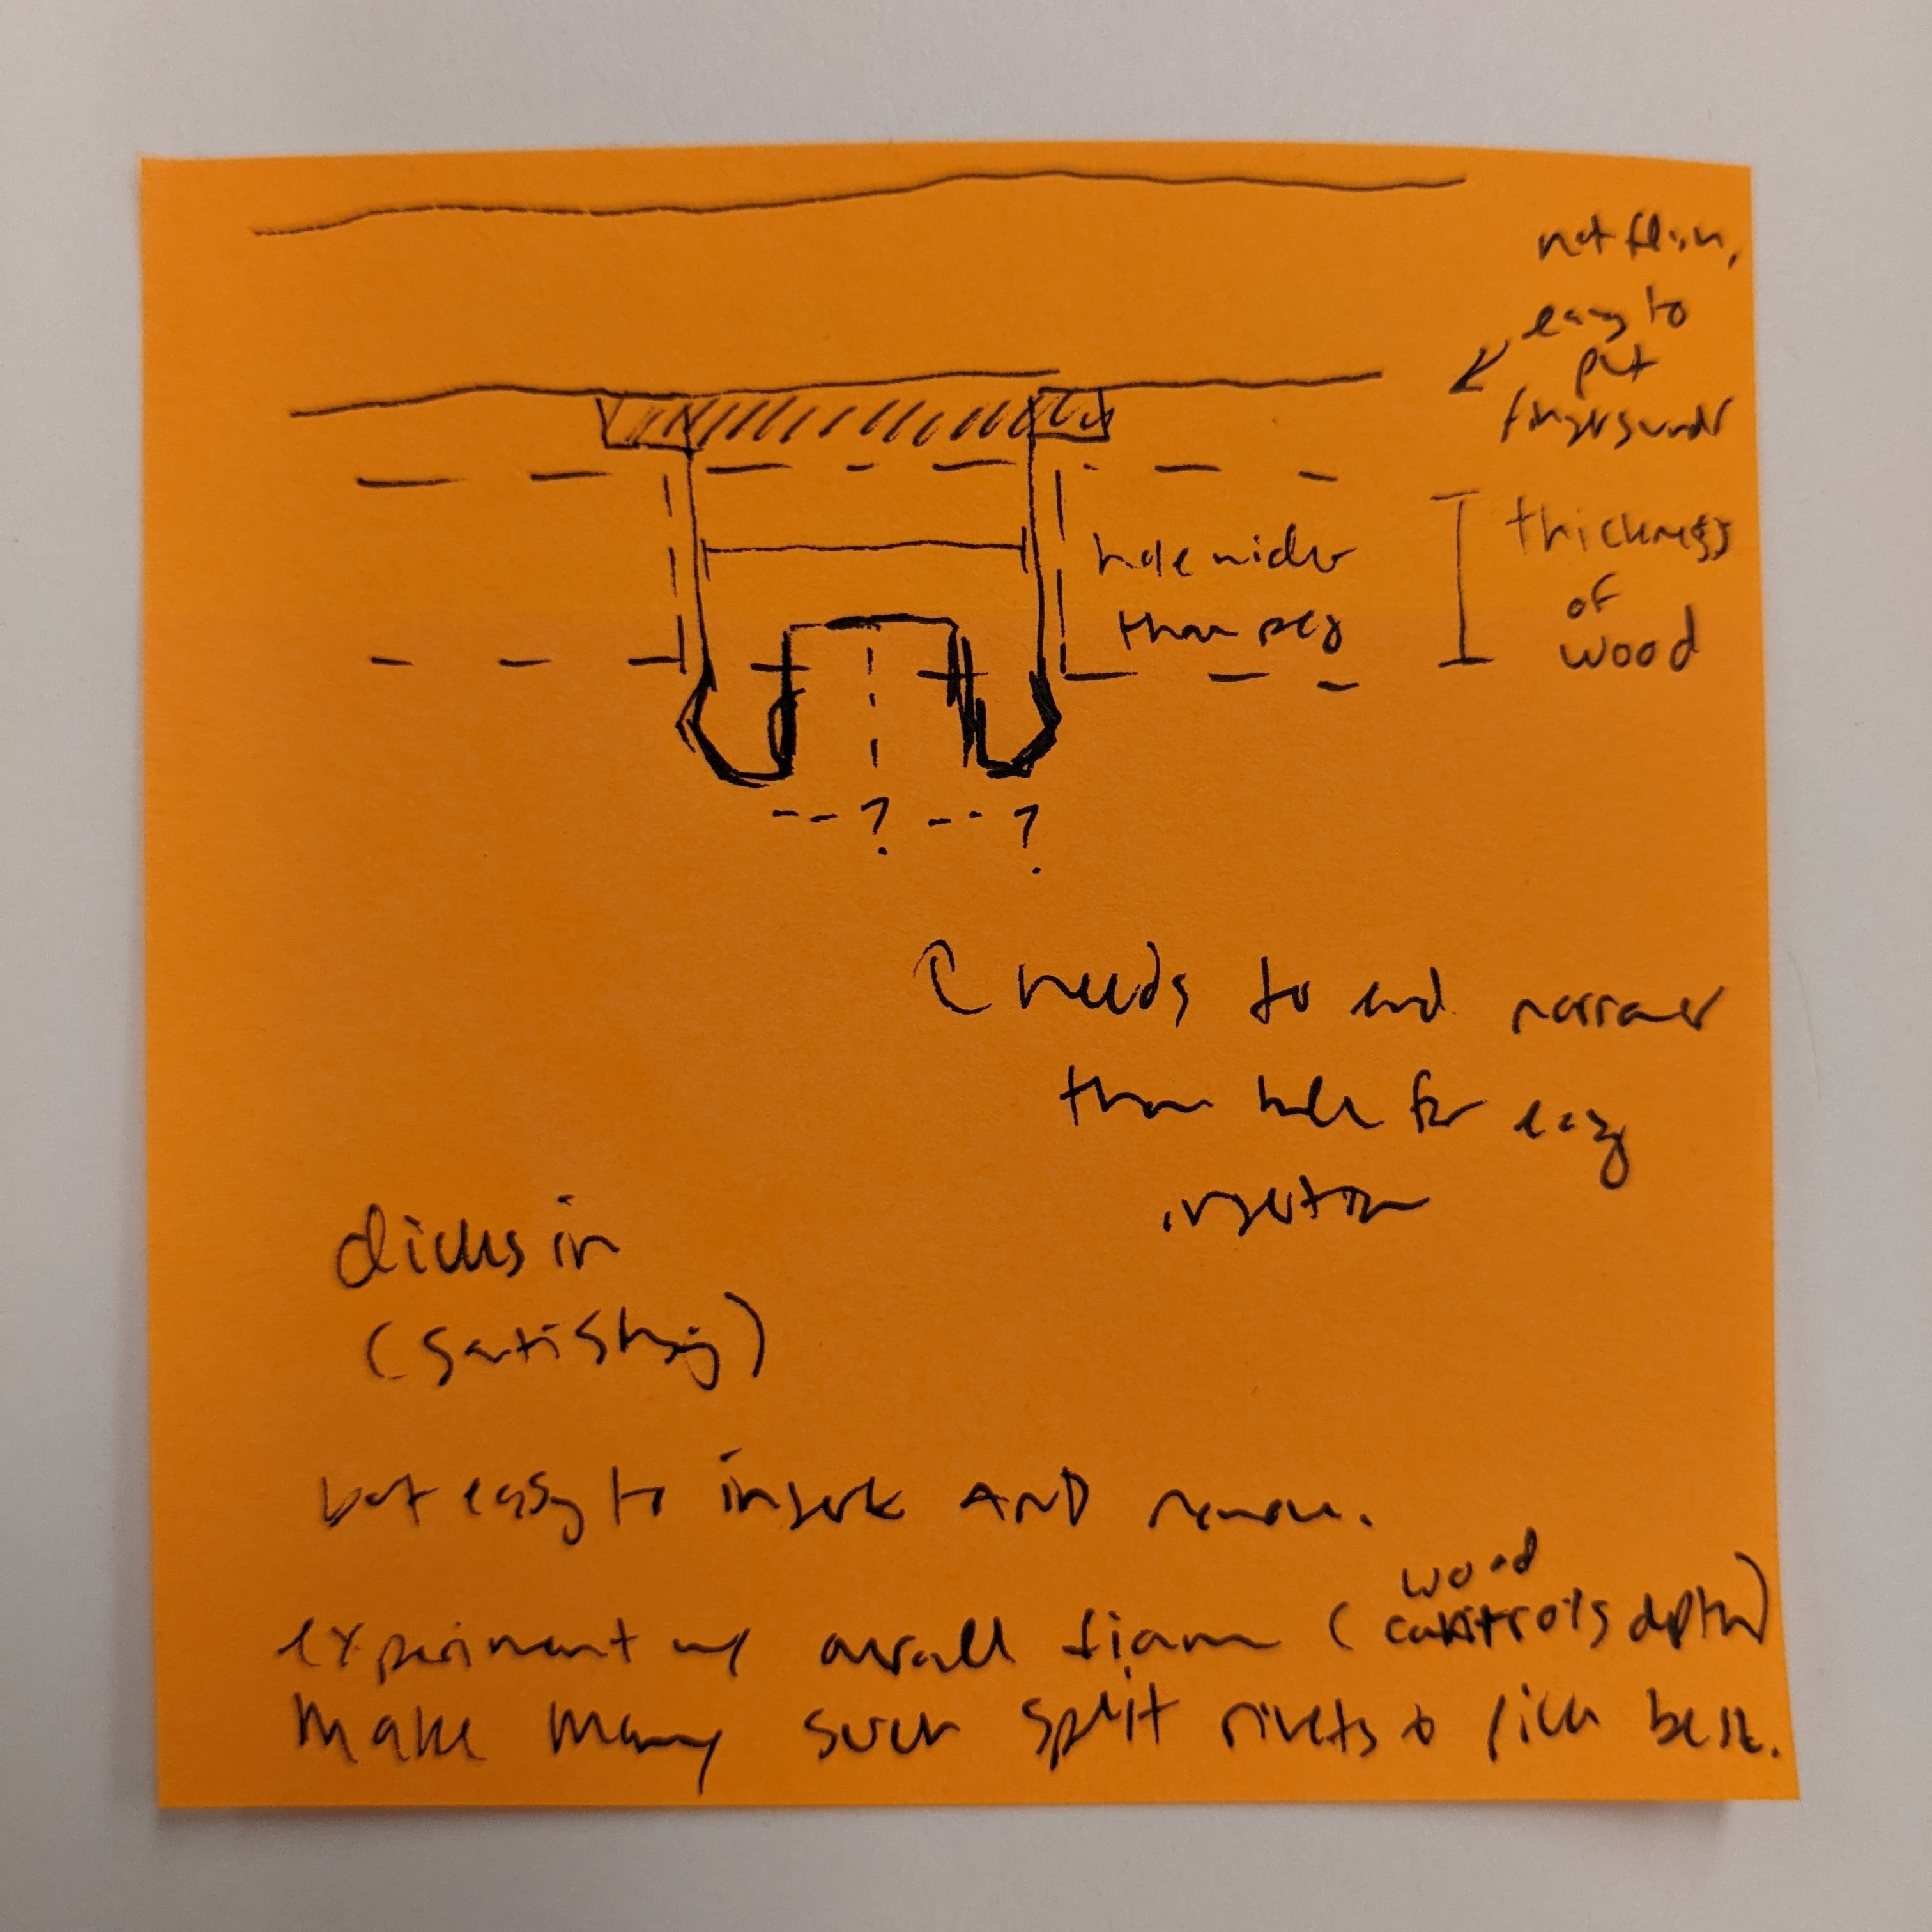 not flush,
easy to
put
fingers under
thickness
of
wood
hole wider
than peg
--?--?
needs to end narrower
than hole for easy
insertion
clicks in
(satisfying)
but easy to insert AND remove.
wood
experiment w/ overall diam (controls depth)
make many such split rivets & pick best.